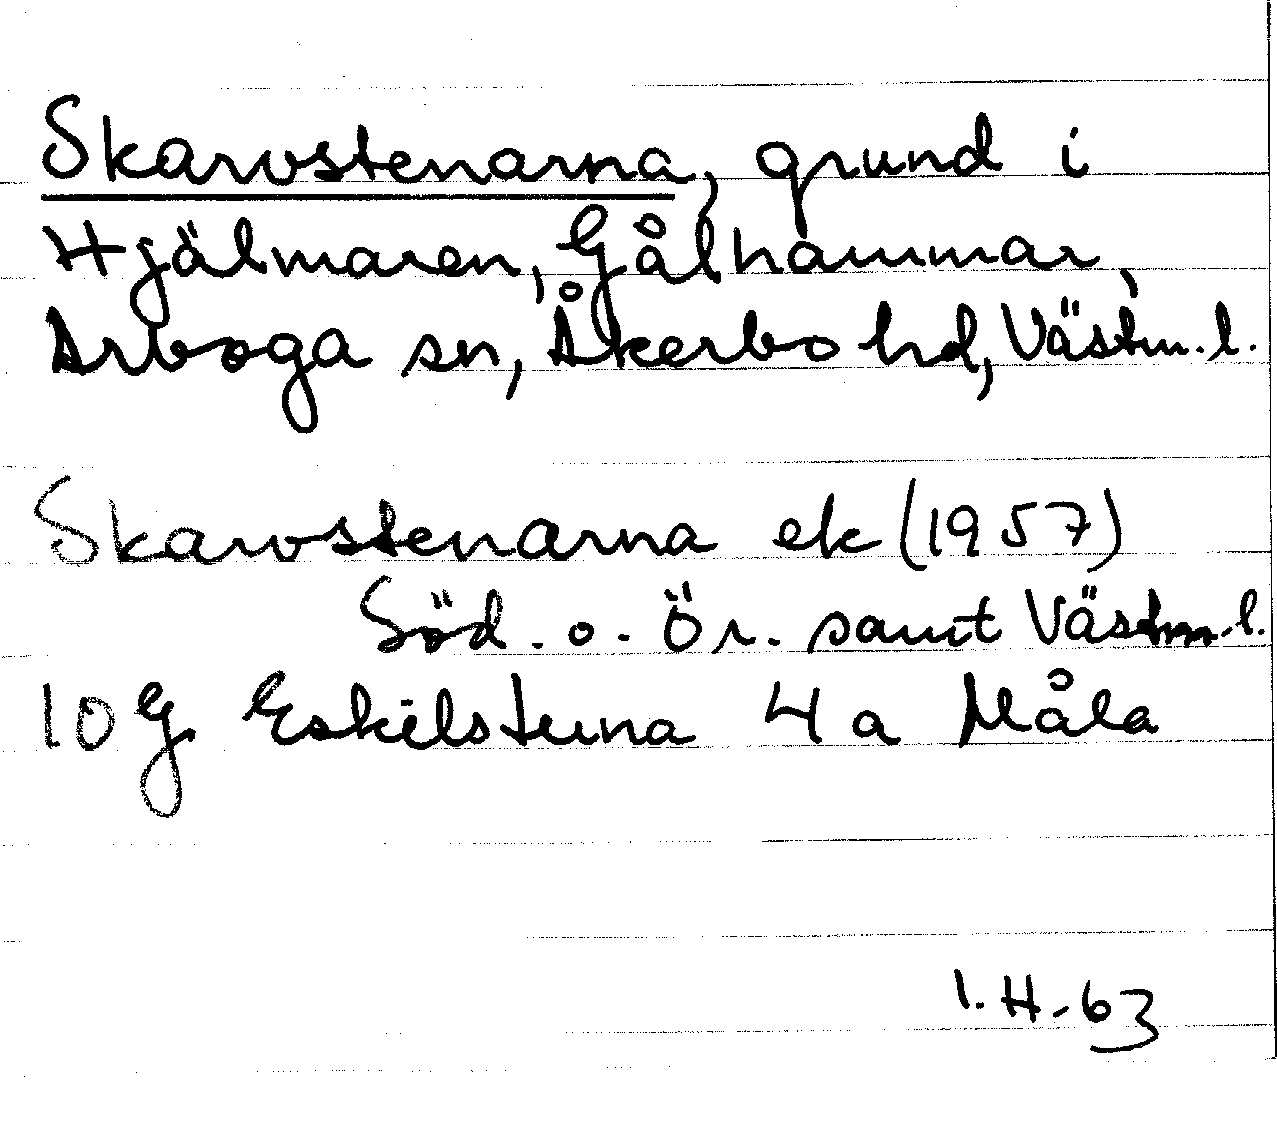 Skarvstenarna, grund i
Hjälmaren, Gålhammar,
Arboga sn, Åkerbo hd, Västm. l.
Skarvstenarna ek (1957)
Söd. o. Ör. samt Västm. l.
10 G Eskilstuna 4 a Måla
I. H. 63